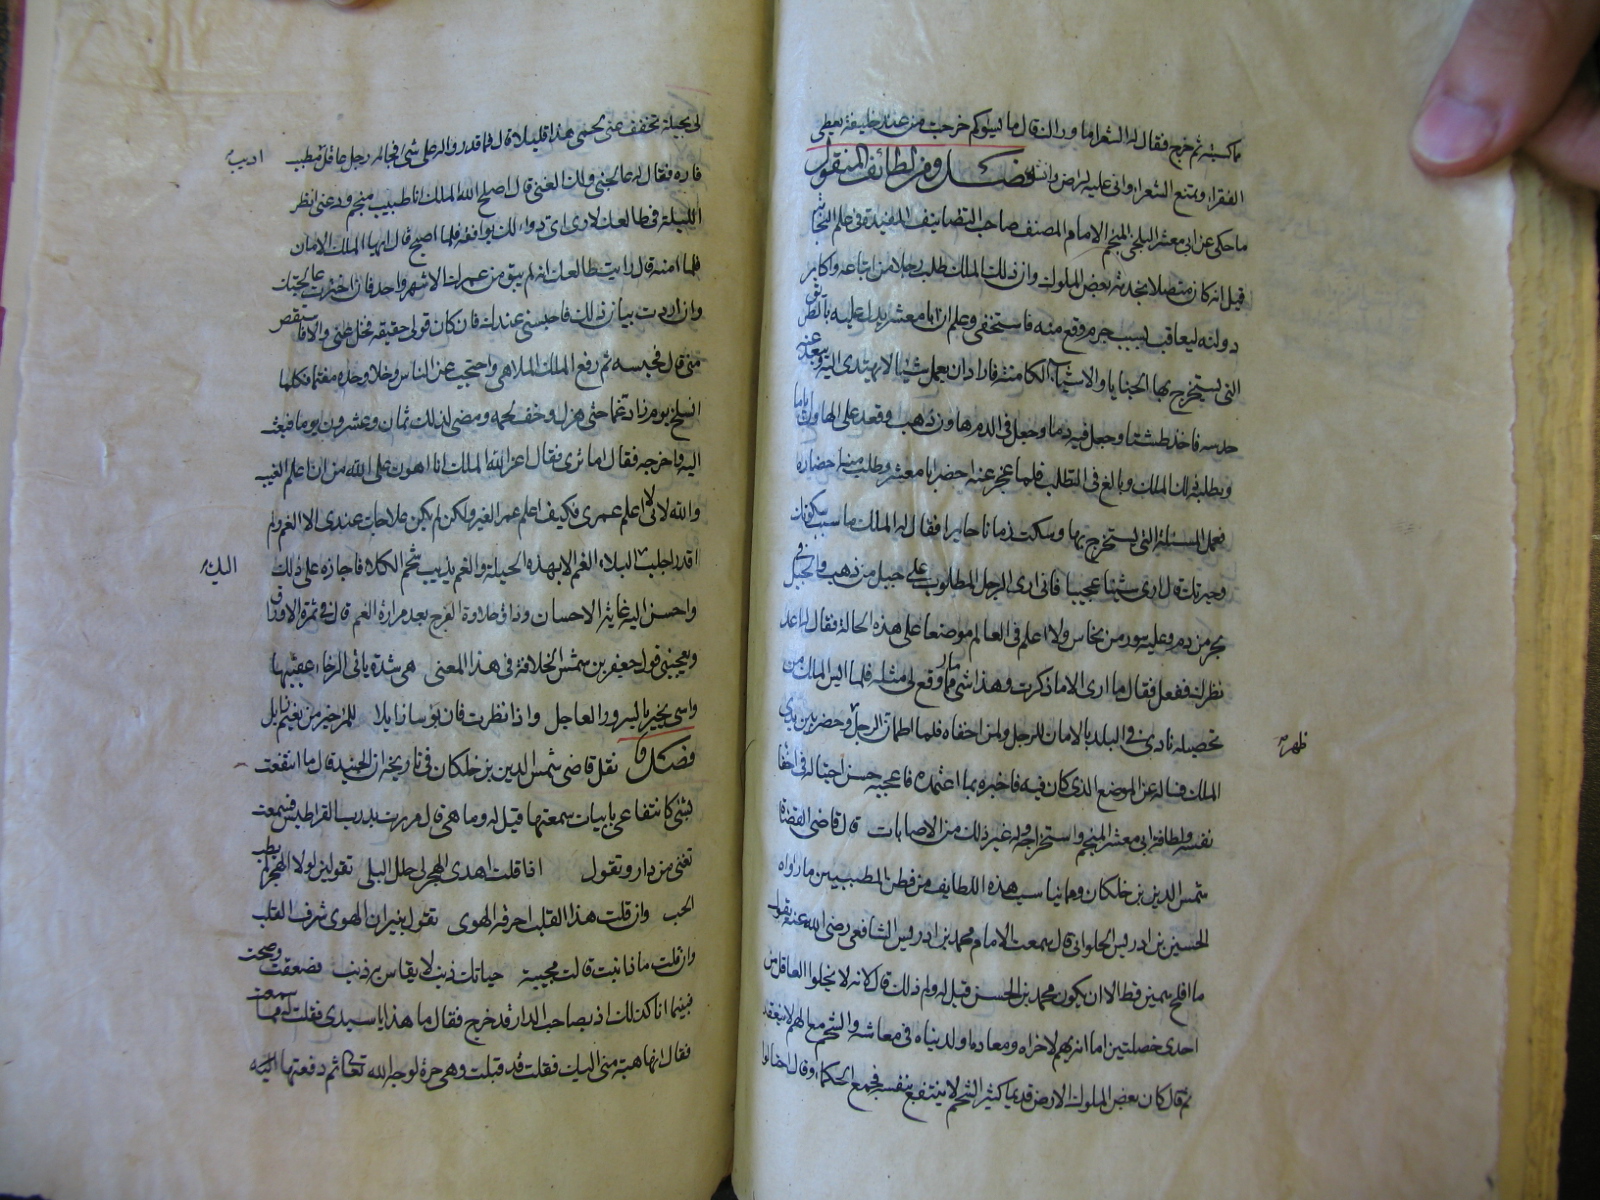 ما كسبته ثم خرج فقال له الشعرا ما وراك قال ما يسوكم خرجت من عند خليفة يعطى
الفقرا ويمنع الشعرا وانى عليه لراض وانشد فصل ومن لطائف المنقول
ما حكى عن ابى معشر البلخى المنجم الامام المصنف صاحب التصانيف المفيدة فى علم النجامة
قيل انه كان متصلا بخدمة بعض الملوك وان ذلك الملك طلب رجلا من اتباعه واكابر
دولته ليعاقبه بسبب جرم وقع منه فاستخفى وعلم ان ابا معشر يدل عليه بالطرق
التى يستخرج بها الخبايا والاشيا الكامنة فاراد ان يعمل شيئا لا يهتدى اليه ويبعد عنه
حدسه فاخذ طشتا وجعل فيه دما وجعل فى الدم هاون ذهب وقعد على الهاون اياما
وبطلبه ذلك الملك وبالغ فى التطلب فلما عجز عنه احضر ابا معشر وطلب منه احضاره
فعمل المسئلة التى يستخرج بها وسكت زمانا حايرا فقال له الملك ما سبب سكوتك
وحيرتك قال ارى شيئا عجيبا فانى ارى الرجل المطلوب على جبل من ذهب والجبل فى
بحر من دم وعليه سور من نحاس ولا اعلم فى العالم موضعا على هذه الحالة فقال له اعد
نظرك ففعل فقال ما ارى الا ما ذكرت وهذا شى ما وقع لى مثله فلما ايس الملك من
تحصيله نادى فى البلد بالامان للرجل ولمن اخفاه فلما اطمان الرجل وحضر بين يدى
ظهر
الملك فساله عن الموضع الذى كان فيه فاخبره بما اعتمده فاعجبه حسن احتياله فى اخفا
نفسه ولطافة ابى معشر المنجم واستخراجه وله غير ذلك من الاصابات قال قاضى القضاة
شمس الدين بن خلكان ومما يناسب هذه اللطايف من فطن المطببين ما رواه
الحسين بن ادريس الحلوانى قال سمعت الامام محمد بن ادريس الشافعى رضى الله عنه يقول
ما افلح سمين قط الا ان يكون محمد بن الحسن فقيل له ولم ذلك قال لانه لا يخلوا العاقل من
احدى خصلتين اما ان يهتم لاخراه ومعاده او لدنياه فى معاشه والشحم مع الهم لا ينعقد
ثم قال كان بعض الملوك الارض قديما كثير الشحم لا ينتفع بنفسه فجمع الحكماء وقال احتالوا
لى بحيلة تخفف عنى لحمى هذا قليلا قال فما قدروا له على شى فجاله رجل عاقل متطبب
اديب
فاره فقال له عالجنى ولك الغنى قال اصلح الله الملك انا طبيب منجم ودعنى انظر
الليلة فى طالعك لارى اى دواء لك يوافقه فلما اصبح قال ايها الملك الامان
فلما امنه قال رايت طالعك انه لم يبق من عمرك الا شهر واحد فان اخترت عالجتك
وان اردت بيان ذلك فاحبسنى عندك فان كان قولى حقيقة فخل عنى والا فاستقص
منى قال فحبسه ثم رفع الملك الملاهى واحتجب عن الناس وخلا وحده مغتما فكلما
انسلخ يوم زاد غما حتى هزل وخف لحمه ومضى لذلك ثمان وعشرون يوما فبعث
اليه واخرجه فقال ما ترى فقال اعز الله الملك انا اهون على الله من ان اعلم الغيب
والله لانى لا اعلم عمرى فكيف اعلم عمر الغير ولكن لم يكن علاجات عندى الا الغم ولم
اقدر اجلب لبلاء الغم الا بهذه الحيلة والغم يذيب شحم الكلا فاجازه على ذلك
اليك
واحسن اليه غاية الاحسان وذاق حلاوة الفرج بعد مرارة الغم قال فى ثمرة الاوراق
ويعجبنى قول جعفر بن شمس الخلافة فى هذا المعنى هى شدة ياتى الرخاء عقيبها
واسى يخبر بالسرور العاجل واذا نظرت فان بوسا زايلا للمرء خير من نعيم زايل
فصل نقل قاضى شمس الدين بن خلكان فى تاريخه ان الجنيد قال ما انتفعت
بشى كانتفاعى بابيات سمعتها قيل له وما هى قال مررت بدرب القراطيس فسمعت
تغنى من دار وتقول اذا قلت اهدى الهجر لى حلل البلى تقولين لولا الهجر لم يطب
الحب وان قلت هذا القلب احرقه الهوى تقول بنيران الهوى شرف القلب
وان قلت ما ذا نبت قالت مجيبة حياتك ذنب لا يقاس به ذنب فصعقت وصحت
فبينما انا كذلك اذ بصاحب الدار قد خرج فقال ما هذا يا سيدى فقلت له مما سمعت
فقال انها هبة منى اليك فقلت قد قبلت وهى حرة لوجه الله تعا ثم دفعتها اليه